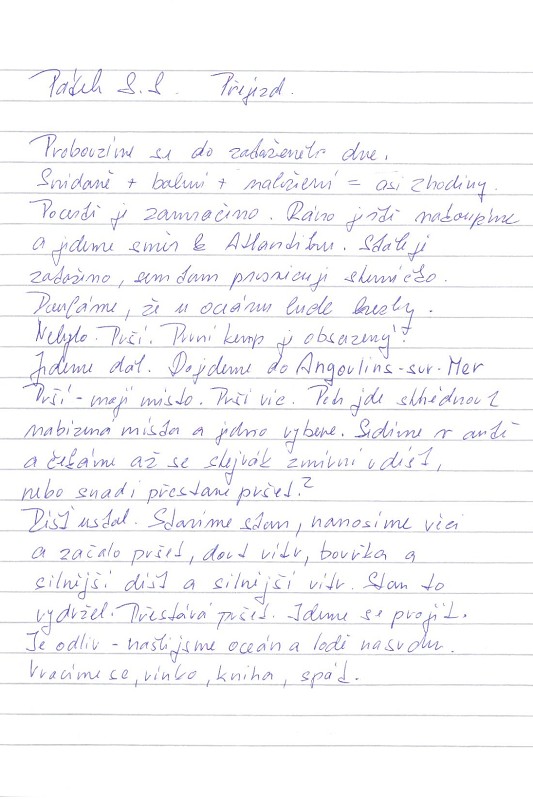 Pátek 8.8. Příjezd.
Probouzíme se do zataženého dne.
Snídaně + balení + naložení = asi 2 hodiny.
Počasí je zamračeno. Ráno ještě nakoupíme
a jedeme směr k Atlantiku. Stále je
zataženo, sem tam prosvicuje sluníčko.
Doufáme, že u oceánu bude hezky.
Nebylo. Prší. První kemp je obsazený?
Jedeme dál. Dojedeme do Angoulins-sur-Mer
Prší - mají místo. Prší víc. Petr jde shlédnout
nabízená místa a jedno vybere. Sedíme v autě
a čekáme až se slejvák zmírní v déšť,
nebo snad i přestane pršet?
Déšť ustal. Stavíme stan, nanosíme věci
a začalo pršet, dout vítr, bouřka a
silnější déšť a silnější vítr. Stan to
vydržel. Přestává pršet. Jdeme se projít.
Je odliv - našli jsme oceán a lodě na suchu.
Vracíme se, vínko, kniha, spát.